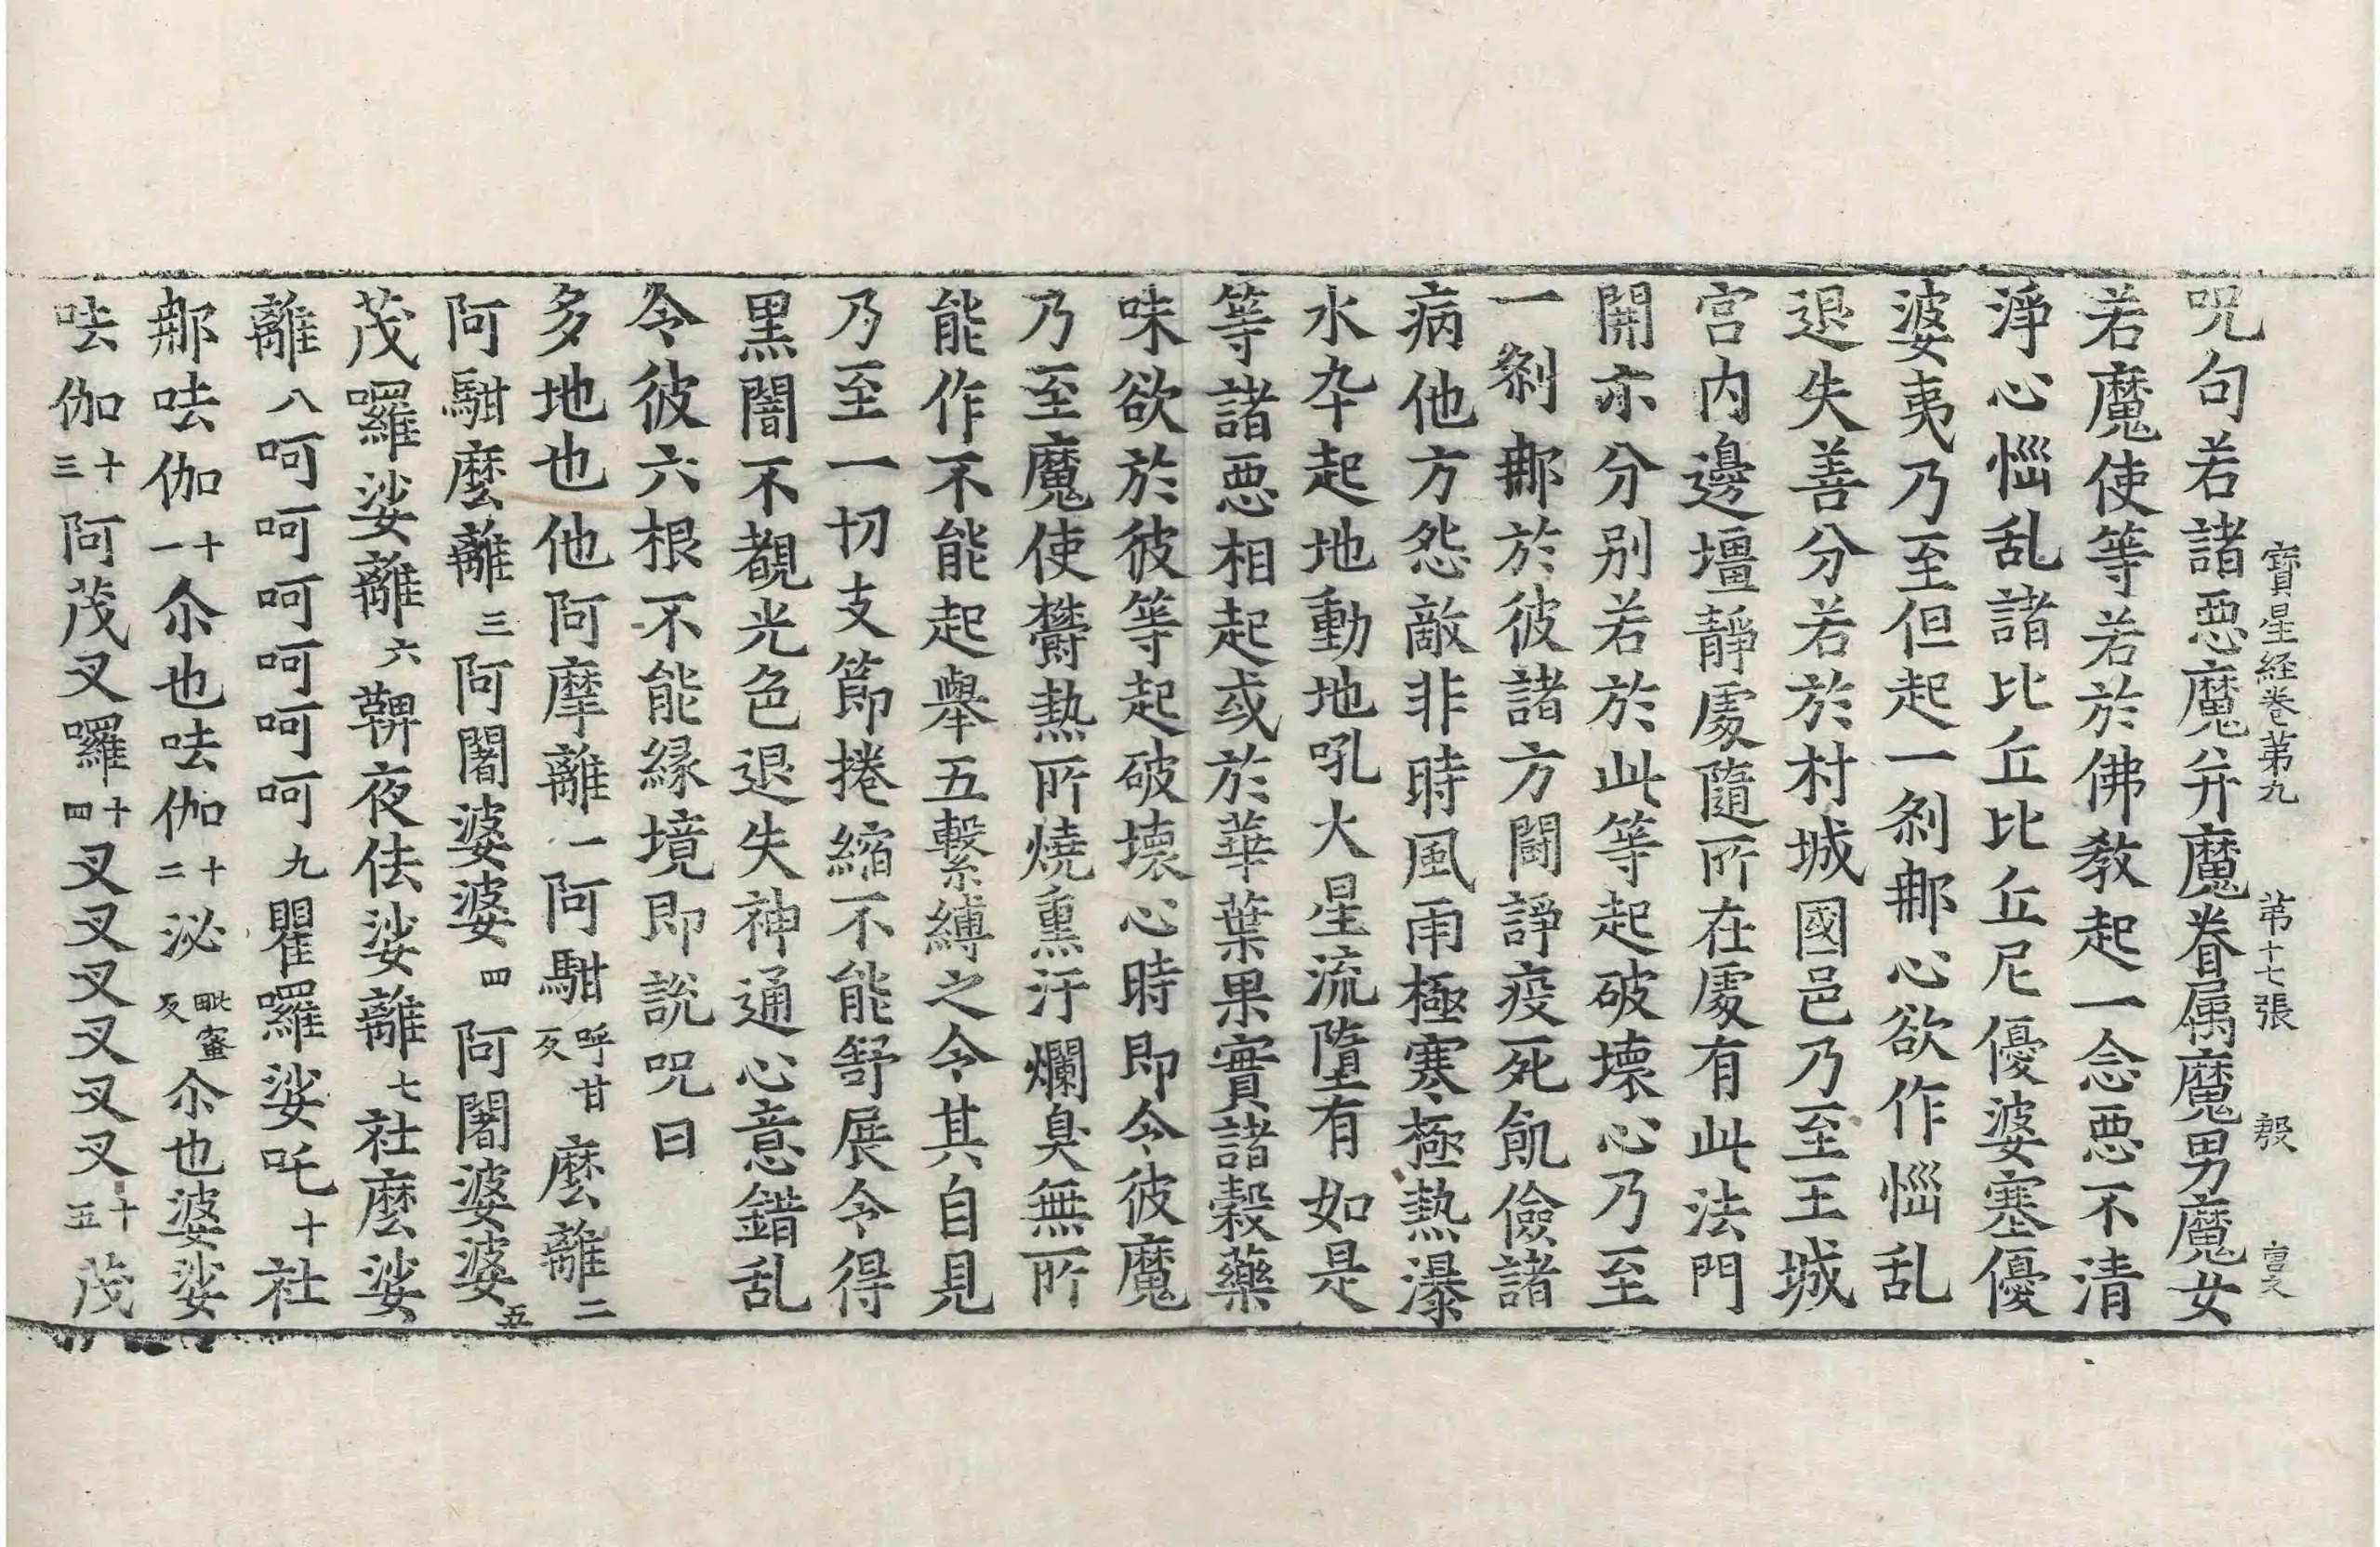 寶星経卷第九 第十七張 㲉
呪句若諸惡魔并魔眷属魔男魔女
若魔使等若於佛教起一念惡不清
淨心惱乱諸比丘比丘尼優婆塞優
婆夷乃至但起一剎那心欲作惱乱
退失善分若於村城國邑乃至王城
宫内邊壃靜處隨所在處有此法門
開亦分别若於此等起破壞心乃至
一剎那於彼諸方鬪諍疫死飢儉諸
病他方怨敵非時風雨極寒極熱瀑
水卒起地動地吼火星流墮有如是
等諸惡相起或於華葉果實諸穀藥
味欲於彼等起破壞心時即令彼魔
乃至魔使欝熱所燒熏汙爛臭無所
能作不能起舉五繫縛之令其自見
乃至一切支節捲縮不能舒展令得
黒闇不覩光色退失神通心意錯乱
令彼六根不能緣境即說呪曰
多地也他阿摩離一阿䭾呼甘反麼離二
阿䭾麼離三阿闍婆婆四阿闍婆婆五
茂囉娑離六鞞夜佉娑離七社麼娑
離八呵呵呵呵呵呵九瞿囉娑吒十社
那呿伽十一尒也呿伽十二泌毗蜜反尒也婆娑
呿伽十三阿茂叉囉十四叉叉叉叉叉叉十五茂